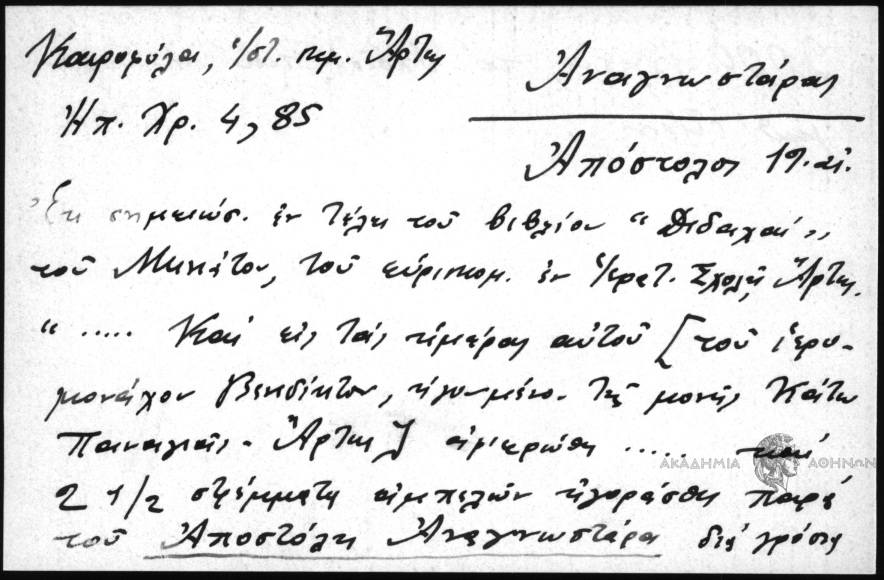 Ἀναγνωστάρας
Ἀπόστολος 19. αἰ.
Ἠπ. Χρ. 4, 85
Ἐκ σημειώσ. ἐν τέλει τοῦ βιβλίου "Διδαχαί"
τοῦ Μηνιάτου, τοῦ εὑρισκομ. ἐν Ἱερατ. Σχολῇ Ἄρτης.
" ..... Καί εἰς τάς ἡμέρας αὐτοῦ [τοῦ ἱερο-
μονάχου Βενεδίκτου, ἡγουμένο. τῆς μονῆς Κάτω
Παναγιᾶς - Ἄρτης] ἀφιερώθη ..... καί
2 1/2 στρέμματα ἀμπελῶν ἠγοράσθη παρά
τοῦ Ἀποστόλη Ἀναγνωστάρα διά γρόσια
ΑΚΑΔΗΜΙΑ ΑΘΗΝΩΝ